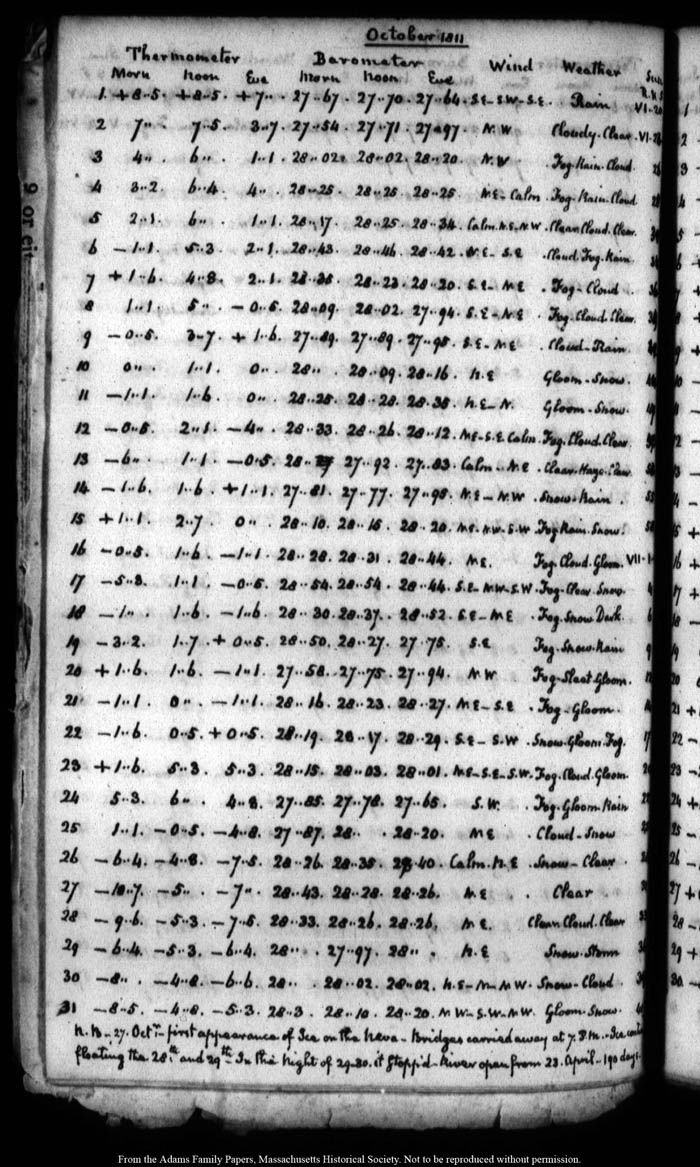 October 1811
Thermometer Barometer Wind Weather
Morn Noon Eve Morn Noon Eve
1 +8..5. +8..5. +7.. 27..67. 27..70. 27..64. S.E-S.W-S.E. Rain VI-20
2 7.. 7..5. 3..7. 27..54. 27..71. 27..97. N.W Cloudy.Clear.
3 4.. 6.. 1..1. 28..02. 28..02. 28..20. N.W Fog.Rain.Cloud
4 3..2. 6..4. 4.. 28..25. 28..25. 28..25. NE-Calm. Fog.Rain.Cloud
5 2..1. 6.. 1..1. 28..17. 28..25. 28..34. Calm.N.E-N.W. Clear.Cloud.Clear.
6 -1..1. 5..3. 2..1. 28..43. 28..46. 28..42. N.E-S.E. Cloud.Fog.Rain
7 +1..6. 4..8. 2..1. 28..35. 28..23. 28..20. S.E-NE Fog-Cloud
8 1..1. 5.. -0..5. 28..09. 28..02. 27..94. S.E-NE Fog.Cloud.Clear.
9 -0..5. 3..7. +1..6. 27..89. 27..89. 27..95. S.E-NE Cloud-Rain.
10 0.. 1..1. 0.. 28.. 28..09. 28..16. N.E Gloom-Snow.
11 -1..1. 1..6. 0.. 28..25. 28..28. 28..35. N.E-N. Gloom-Snow.
12 -0..5. 2..1. -4.. 28..33. 28..26. 28..12. NE-S.E.Calm. Fog.Cloud.Clear
13 -6.. 1..1. -0..5. 28.. 27..92. 27..83. Calm-NE. Clear.Haze.Clear
14 -1..6. 1..6. +1..1. 27..81. 27..77. 27..95. N.E-N.W. Snow-Rain.
15 +1..1. 2..7. 0.. 28..10. 28..15. 28..20. NE.NW.S.W. Fog.Rain.Snow.
16 -0..5. 1..6. -1..1. 28..28. 28..31. 28..44. NE. Fog.Cloud.Gloom. VII-1
17 -5..3. 1..1. -0..5. 28..54. 28..54. 28..44. S.E-NW-S.W. Fog-Clear-Snow
18 -1.. 1..6. -1..6. 28..30. 28..37. 28..52. S.E-NE. Fog.Snow.Dark.
19 -3..2. 1..7. +0..5. 28..50. 28..27. 27..75. S.E Fog-Snow.Rain
20 +1..6. 1..6. -1..1. 27..58. 27..75. 27..94. NW Fog-Sleet.Gloom.
21 -1..1. 0.. -1..1. 28..16. 28..23. 28..27. NE-S.E Fog-Gloom.
22 -1..6. 0..5. +0..5. 28..19. 28..17. 28..29. S.E-S.W. Snow.Gloom.Fog.
23 +1..6. 5..3. 5..3. 28..15. 28..03. 28..01. NE-S.E-S.W. Fog.Cloud.Gloom.
24 5..3. 6.. 4..8. 27..85. 27..78. 27..65. S.W. Fog-Gloom-Rain
25 1..1. -0..5. -4..8. 27..87. 28.. 28..20. NE Cloud-Snow
26 -6..4. -4..8. -7..5. 28..26. 28..35. 28..40. Calm.N.E. Snow-Clear
27 -10..7. -5.. -7.. 28..43. 28..28. 28..26. N.E Clear
28 -9..6. -5..3. -7..5. 28..33. 28..26. 28..26. NE. Clear.Cloud.Clear
29 -6..4. -5..3. -6..4. 28.. 27..97. 28.. N.E Snow-Storm
30 -8.. -4..8. -6..6. 28.. 28..02. 28..02. N.E-N-NW. Snow-Cloud
31 -8..5. -4..8. -5..3. 28..3. 28..10. 28..20. NW-S.W-NW. Gloom-Snow.
N.B-27.Octr.-first appearance of Ice on the Neva-Bridges carried away at 7.P.M.-Ice
floating the 28th. and 29th-In the Night of 29-30. it stopp'd-River open from 23.April-190 days.
From the Adams Family Papers, Massachusetts Historical Society. Not to be reproduced without permission.